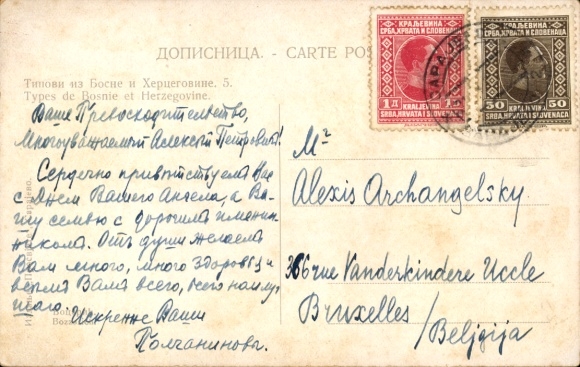 ДОПИСНИЦА. - CARTE POS
Типови из Босне и Херцеговине. 5.
Types de Bosnie et Herzegovine.
КРАЉЕВИНА
СРБА, ХРВАТА И СЛОВЕНАЦА
1 Д
KRALJEVINA
SRBA, HRVATA I SLOVENACA
КРАЉЕВИНА
СРБА, ХРВАТА И СЛОВЕНАЦА
50 50
KRALJEVINA
SRBA, HRVATA I SLOVENACA
Ваше Превосходительство,
Многоуважаемый Алексей Петровичъ!
Сердечно привѣтствуемъ Вас
с Днем Вашего Ангела, а Ва-
шу семью с дорогимъ именин-
никомъ. Отъ души желаемъ
Вам много, много здоровья и
всѣмъ Вамъ всего, всего наилуч-
шаго.
Искренне Ваши
Колчаниновы.
Mr
Alexis Archangelsky.
366 rue Vanderkindere Uccle
Bruxelles
/Beljgija